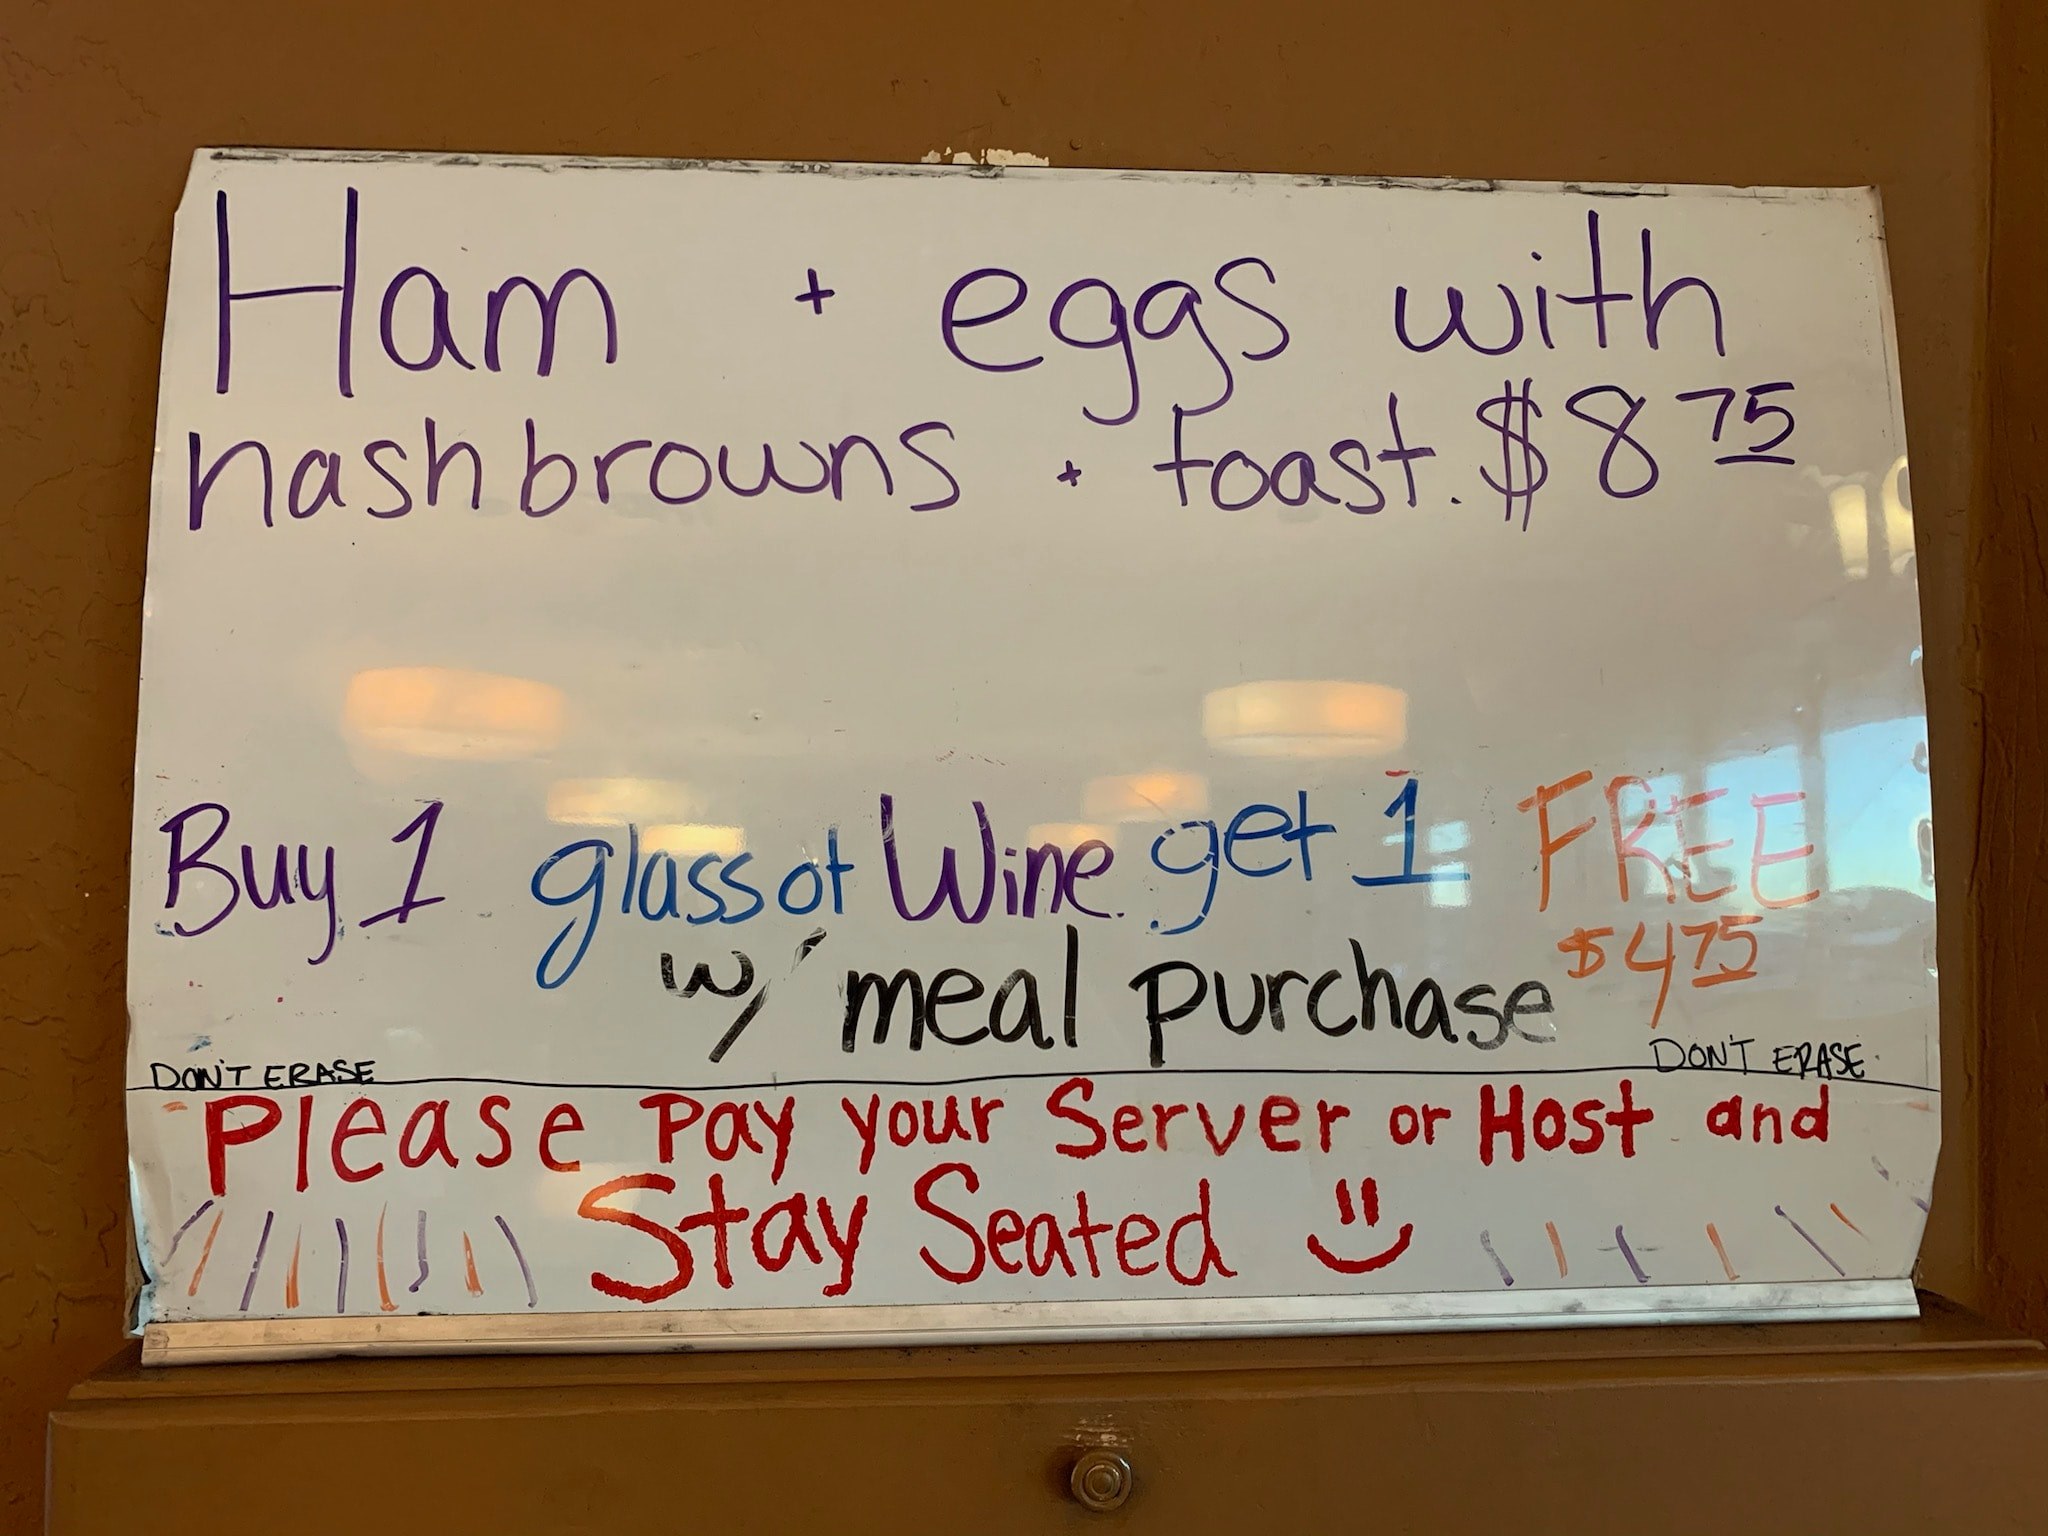 Ham + eggs with
hashbrowns + toast. $8 75
Buy 1 glass of Wine get 1 FREE
w/ meal purchase $4 75
DON'T ERASE DON'T ERASE
Please Pay your Server or Host and
Stay Seated